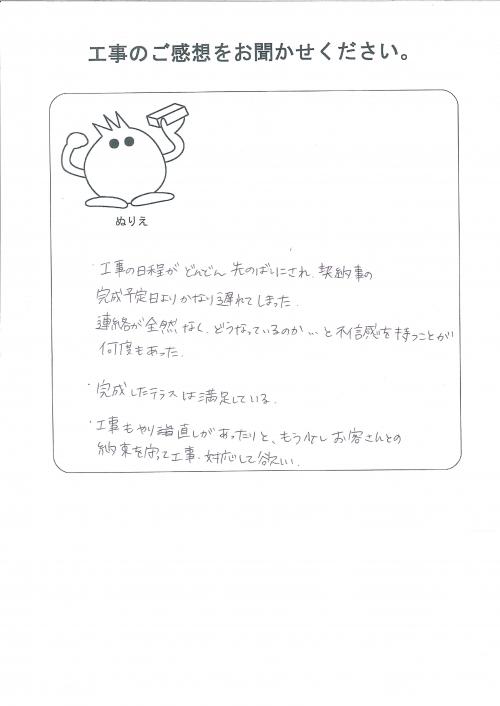 工事のご感想をお聞かせください。
ぬりえ
・工事の日程がどんどん先のばしにされ、契約事の
完成予定日よりかなり遅れてしまった。
連絡が全然なく、どうなっているのか…と不信感を持つことが
何度もあった。
・完成したテラスは満足している。
・工事もやり直しがあったりと、もう少しお客さんとの
約束を守って工事・対応して欲しい。